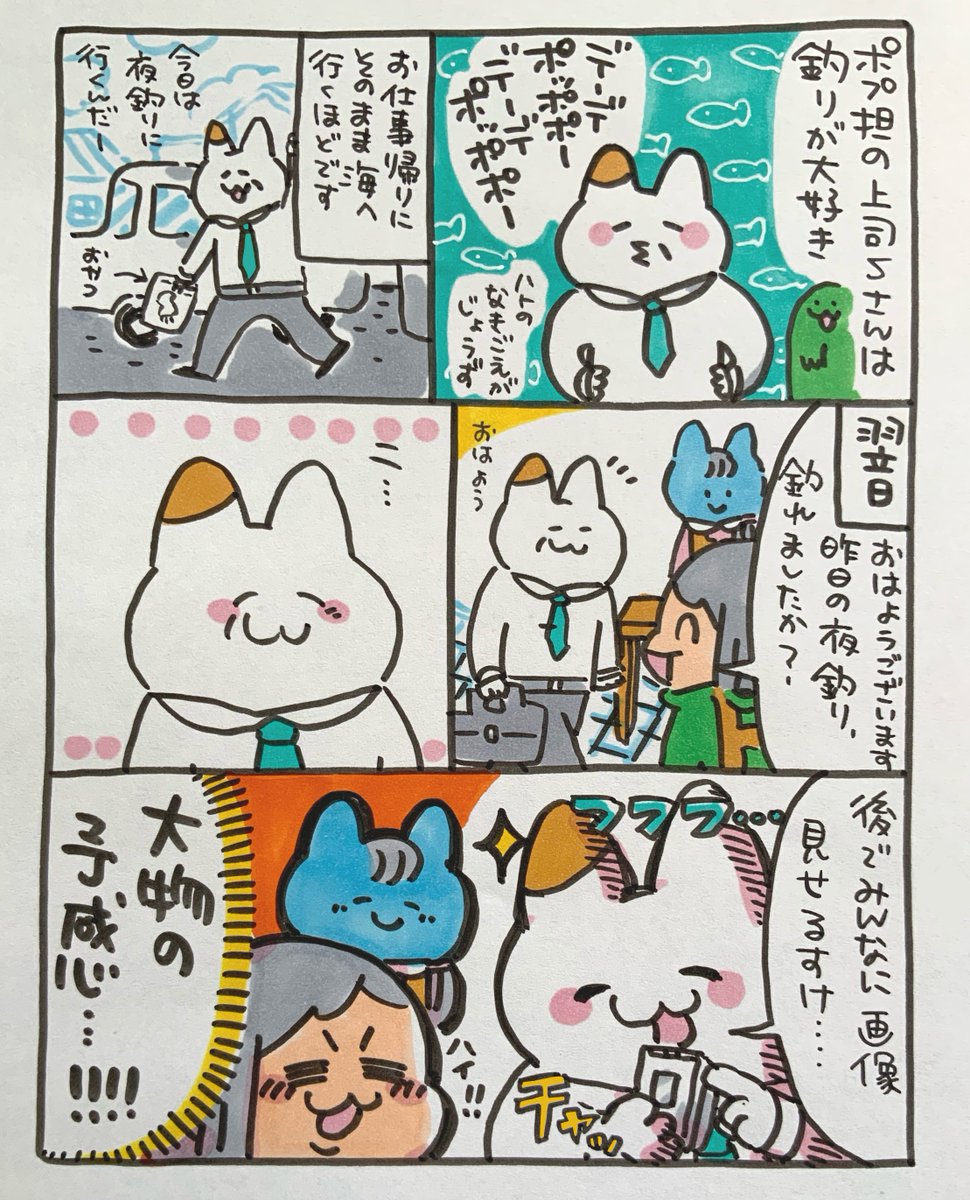 ポプ担の上司Sさんは
釣りが大好き
デーデ
ポッポー
デーデ
ポッポポー
ハトの
なきごえが
じょうず
お仕事帰りに
そのまま海へ
行くほどです
今日は
夜釣りに
行くんだー
おやつ
翌日
おはようございます
昨日の夜釣り、
釣れましたか?
おはよう
ニ…
後でみんなに画像
見せるすけ……
フフフ…
チャッ
ハイ!!
大物の
予感…
!!!!